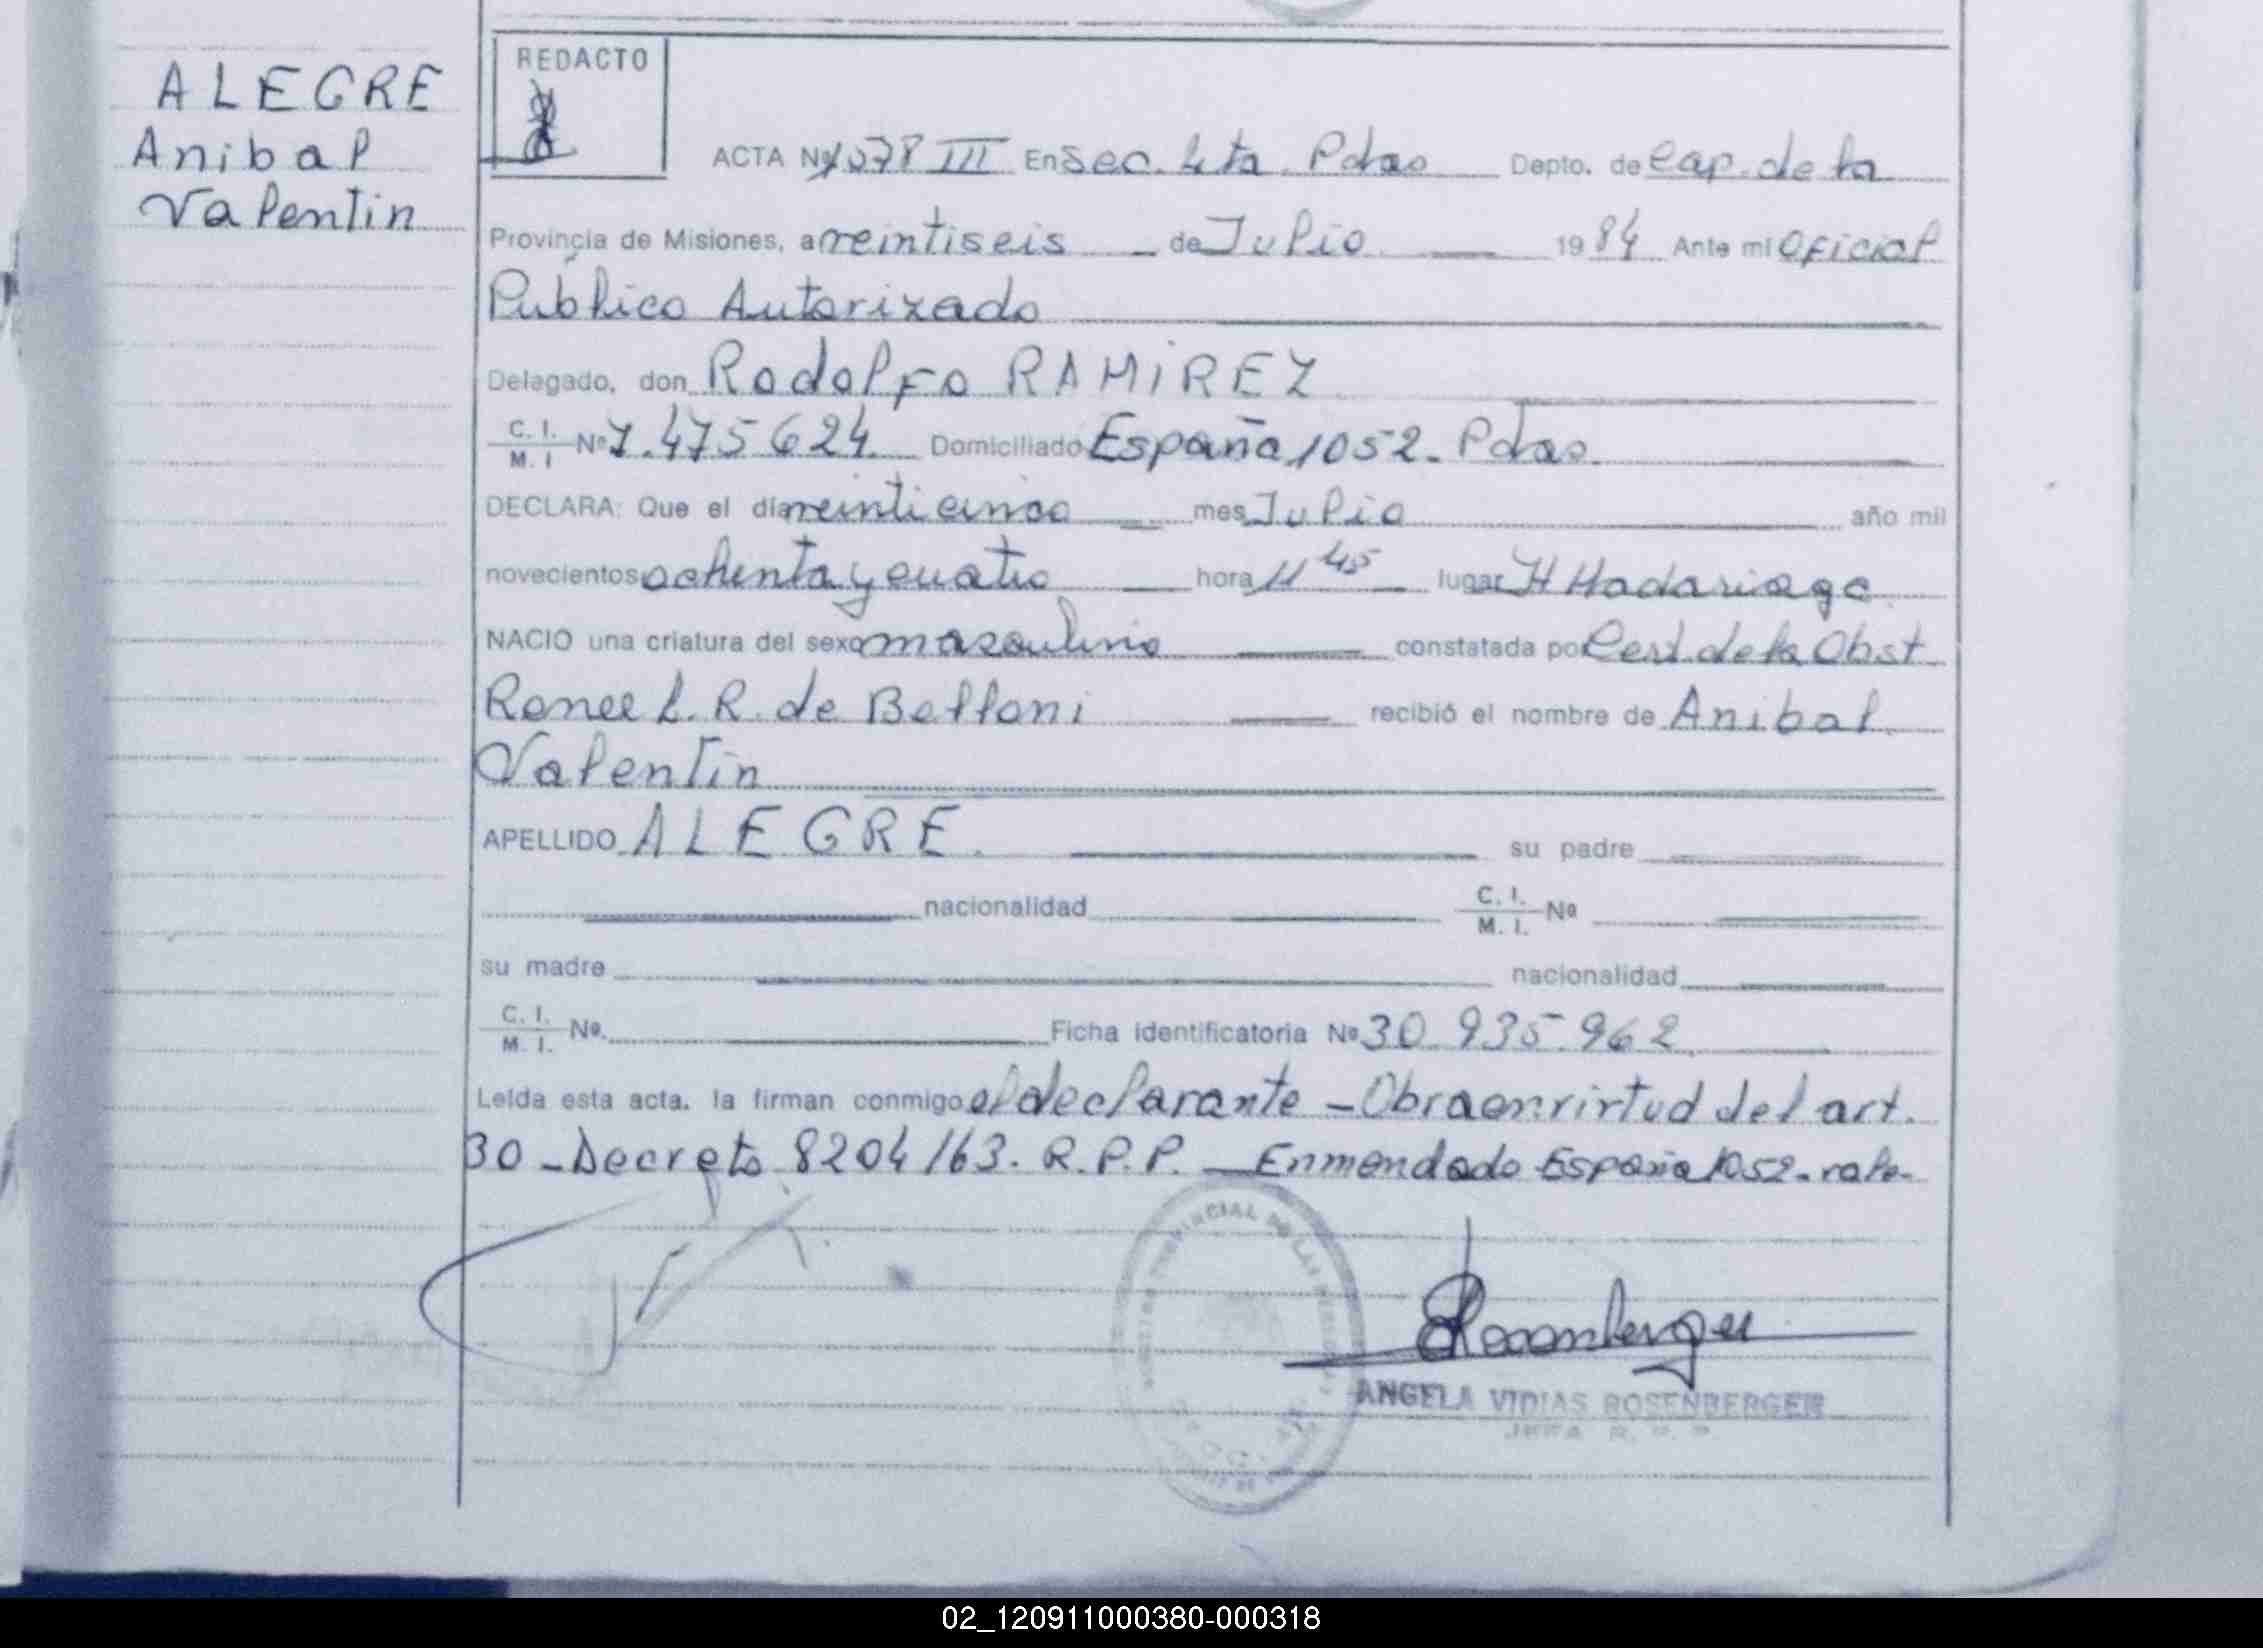 ALEGRE
Anibal
Valentin
REDACTO
ACTA Nº 1078 III En Sec. 4ta. Pdas Depto. de Cap. de la
Provincia de Misiones, a veintiseis de Julio 1984 Ante mi Oficial
Público Autorizado
Delegado, don Rodolfo RAMIREZ
C. I. / M. I Nº 7.475624. Domiciliado España 1052. Pdas.
DECLARA: Que el día veinticinco mes Julio año mil
novecientos ochenta y cuatro hora 11 45 lugar H Madariaga
NACIO una criatura del sexo masculino constatada por Cert. de la Obst
Renee L. R. de Belloni recibió el nombre de Anibal
Valentin
APELLIDO ALEGRE. su padre
nacionalidad C. I. / M. I. Nº
su madre nacionalidad
C. I. / M. I. Nº. Ficha identificatoria Nº 30.935.962.
Leída esta acta. la firman conmigo el declarante - Obra en virtud del art.
30 - Decreto 8204/63. R.P.P. - Enmendado España 1052. vale.
Rosenberger
ANGELA VIDIAS ROSENBERGER
JEFA R. P. P
02_120911000380-000318